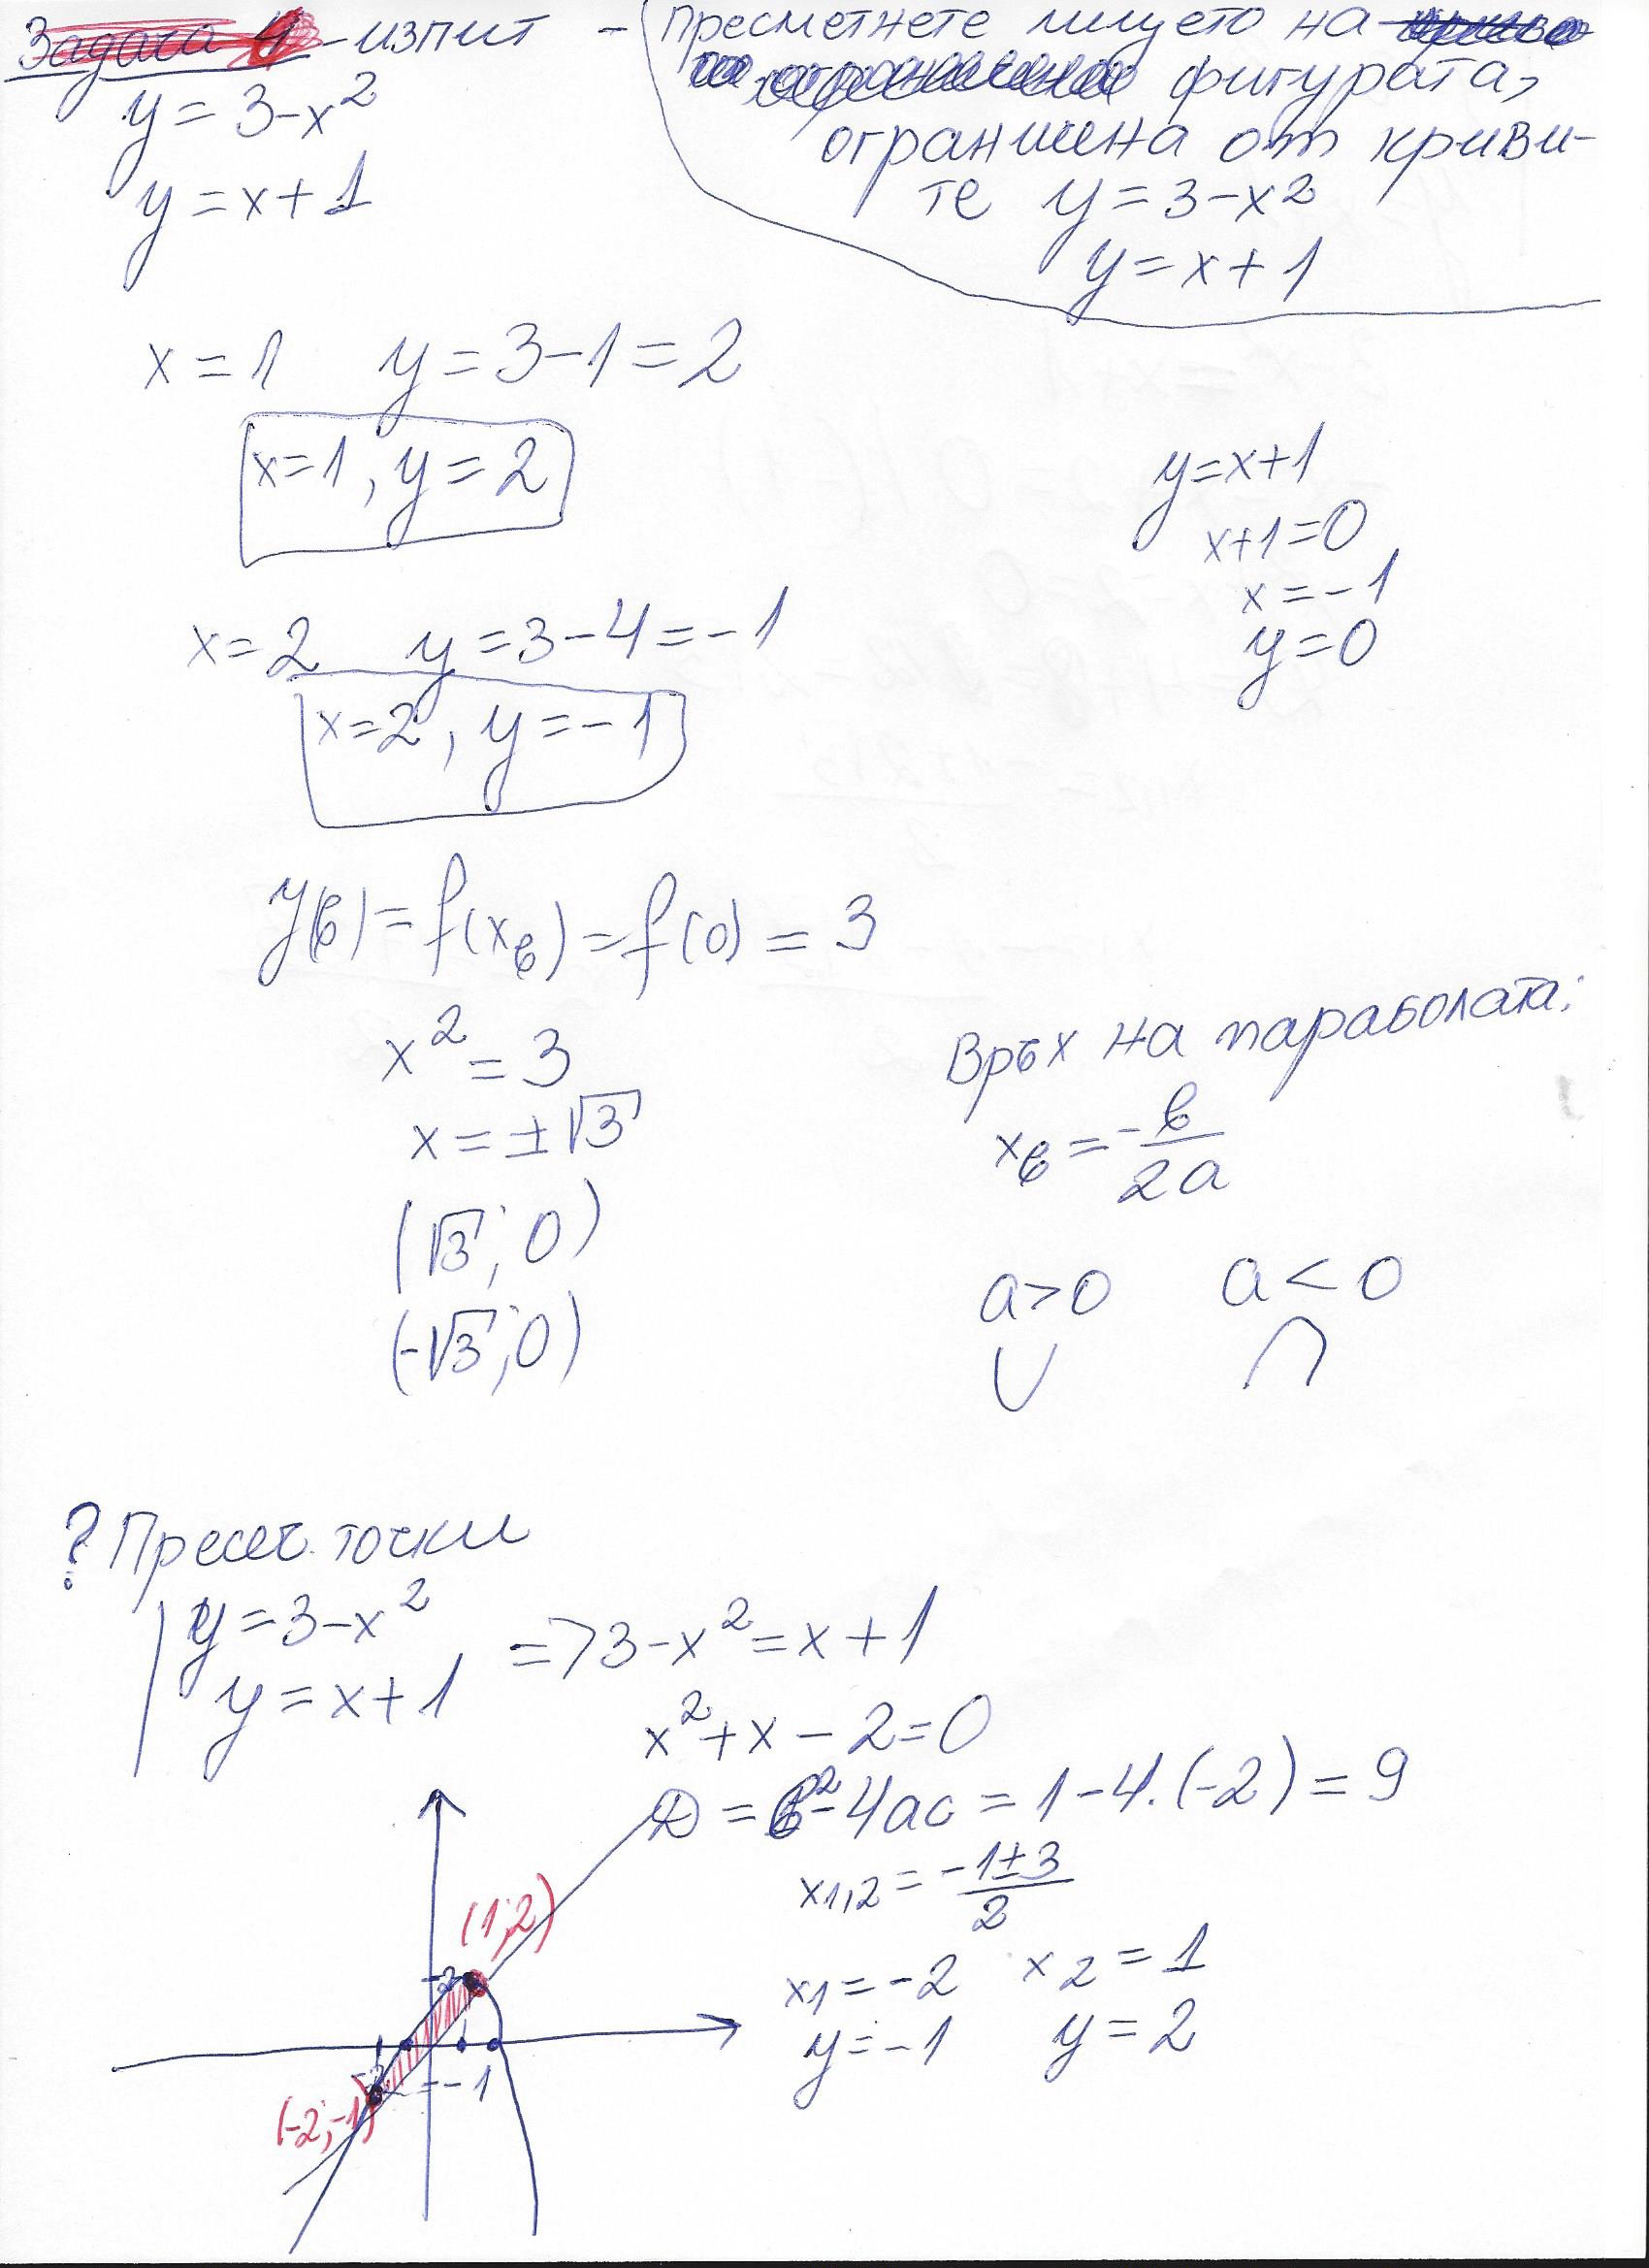 Задача 4 - изпит - Пресметнете лицето на
фигурата,
ограничена от криви-
те y = 3-x²
y = x+1
y = 3-x²
y = x+1
x = 1 y = 3-1 = 2
x=1, y=2
x=2 y=3-4=-1
x=2, y=-1
y=x+1
x+1=0
x=-1
y=0
y(в) = f(xв) = f(0) = 3
x² = 3
x = ±√3
(√3; 0)
(-√3; 0)
Връх на параболата:
xв = -в/2a
a>0 a<0
? Пресеч. точки
y=3-x² => 3-x² = x+1
y = x+1
x²+x-2=0
D = b²-4ac = 1-4.(-2) = 9
x1,2 = -1±3/2
x1=-2 x2=1
y=-1 y=2
(1;2)
-2
-1
(-2;-1)